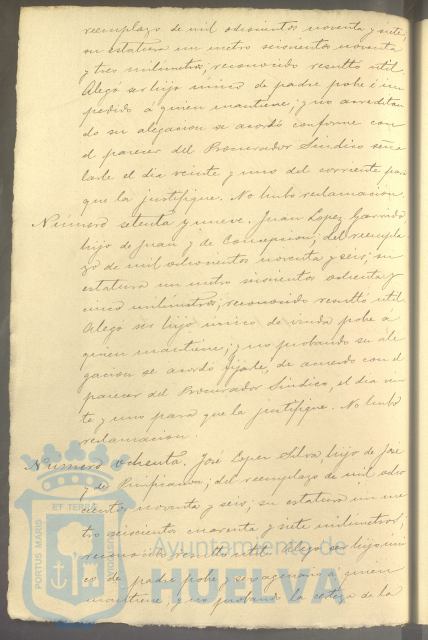 reemplazo de mil ochocientos noventa y siete,
su estatura un metro seiscientos noventa
y tres milimetros, reconocido resultó útil
Alegó ser hijo único de padre pobre é im
pedido a quien mantiene; y no acreditan
do su alegacion se acordó conforme con
el parecer del Procurador Sindico seña
larle el dia veinte y uno del corriente para
que la justifique. No hubo reclamacion.
Número setenta y nueve. Juan Lopez Garrido
hijo de Juan y de Concepcion; del reempla
zo de mil ochocientos noventa y seis; su
estatura un metro seiscientos ochenta y
cinco milimetros; reconocido resultó útil
Alegó ser hijo único de viuda pobre a
quien mantiene; y no probando su ale
gacion se acordó fijarle, de acuerdo con el
parecer del Procurador Sindico, el dia vein
te y uno para que la justifique. No hubo
reclamacion.
Número ochenta. José Lopez Silva hijo de José
y de; del reemplazo de mil ocho
cientos noventa y seis; su estatura un me
tro seiscientos cuarenta y siete milimetros,
reconocido resultó útil. Alegó ser hijo úni
co de padre pobre y sexagenario á quien
mantiene; y no probando la certeza de la
PORTUS MARIS
ET TERRÆ
Ayuntamiento de
HUELVA